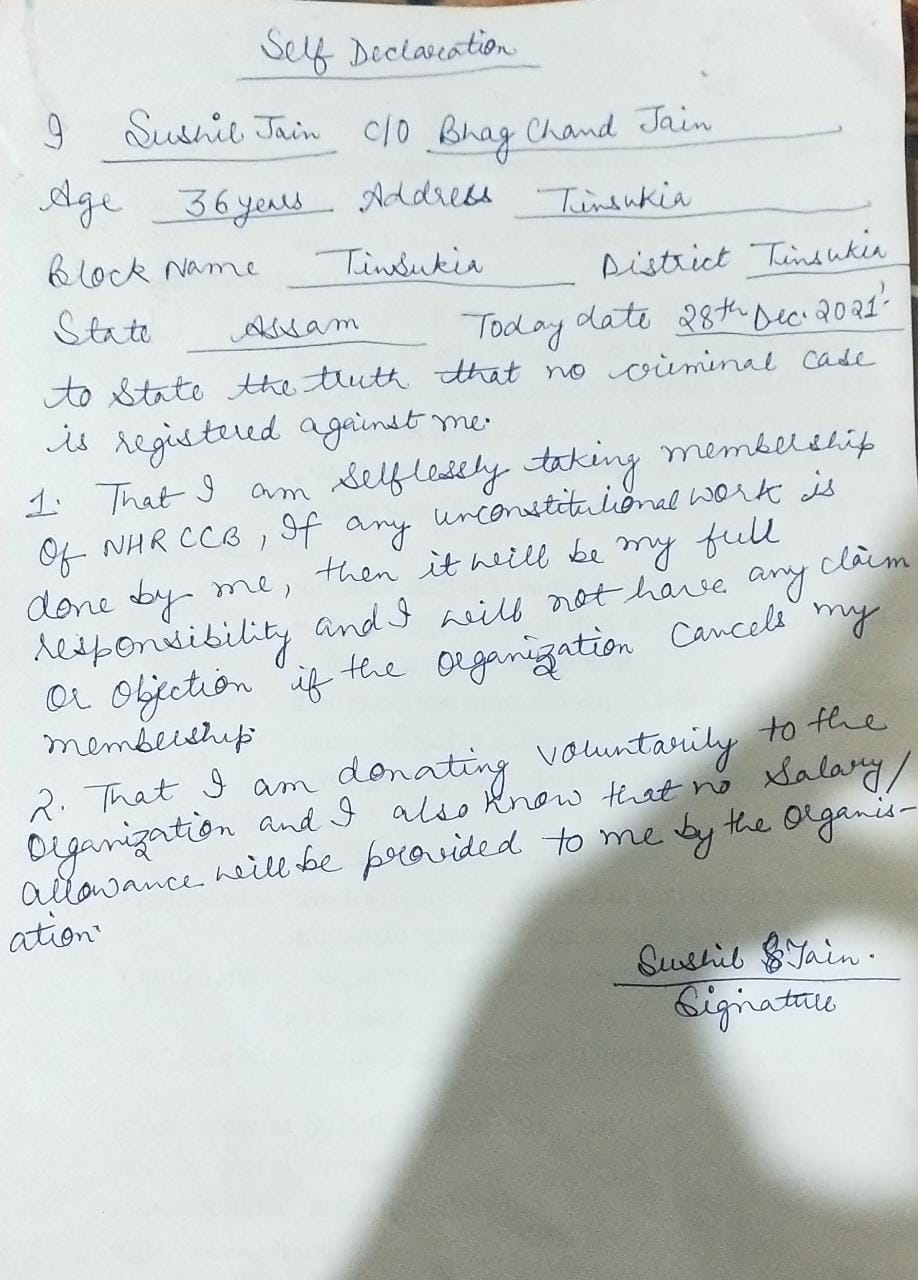 Self Declaration
I Sushil Jain C/O Bhag Chand Jain
Age 36 years Address Tinsukia
Block Name Tinsukia District Tinsukia
State Assam Today date 28th Dec. 2021'
to state the truth that no criminal case
is registered against me.
1. That I am selflessly taking membership
Of NHRCCB, If any unconstitutional work is
done by me, then it will be my full
responsibility and I will not have any claim
Or Objection if the Organization Cancels my
membership.
2. That I am donating voluntarily to the
Organization and I also know that no Salary/
allowance will be provided to me by the Organis-
ation.
Sushil Jain.
Signature